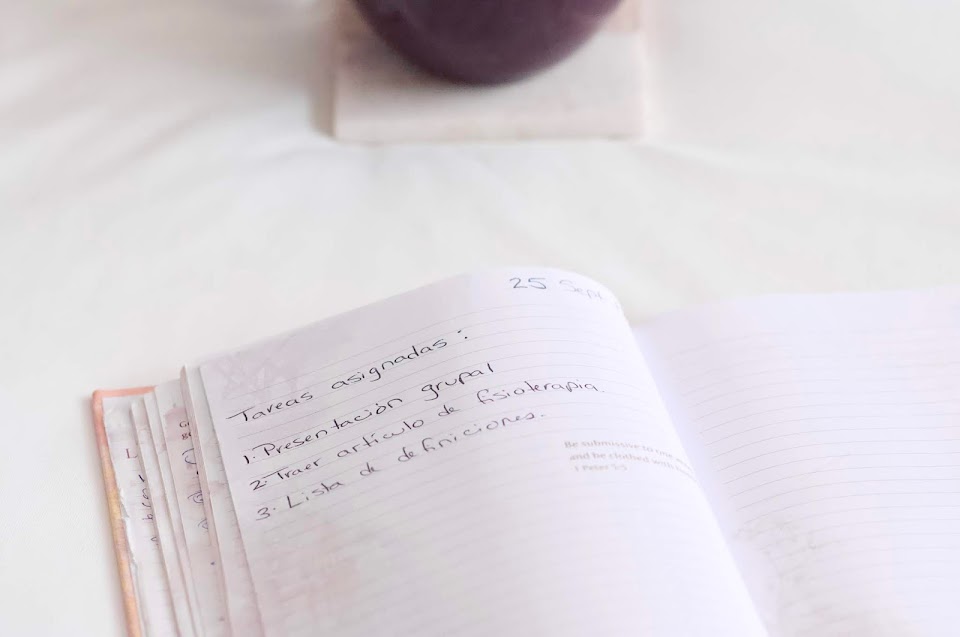 25 Sept
Tareas asignadas:
1. Presentación grupal
2- Traer artículo de fisioterapia.
3. Lista de definiciones.
Be submissive to one
and be clothed with
1 Peter 5:5